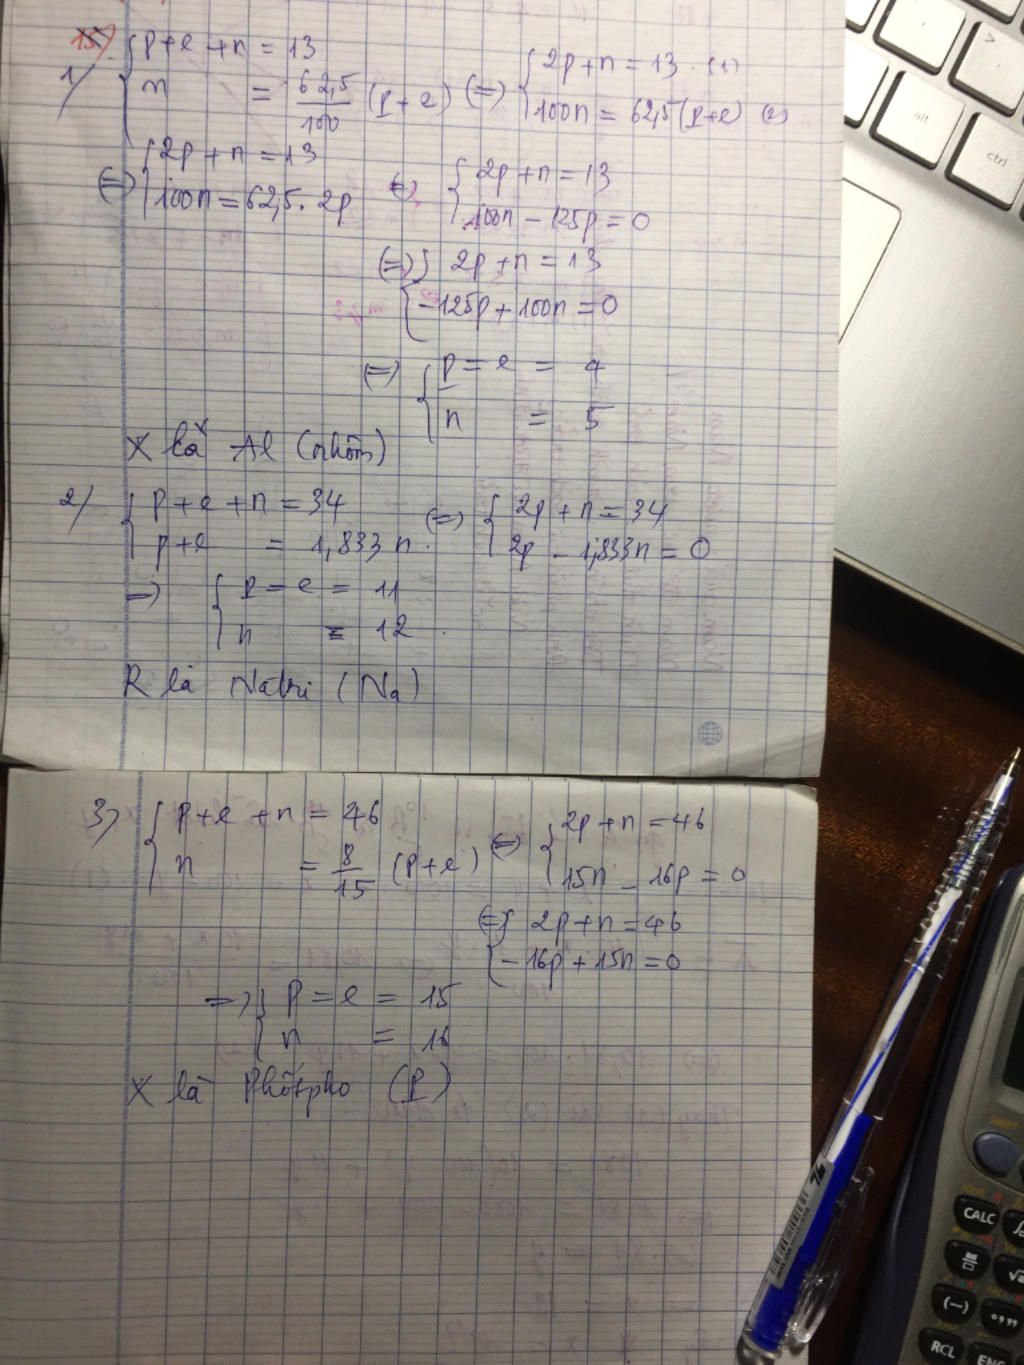 15)
1/ { p+e+n = 13
n = 62,5/100 (p+e) (=) { 2p+n = 13 (1)
100n = 62,5(p+e) (2)
(=) { 2p+n = 13
100n = 62,5.2p (=) { 2p+n = 13
100n - 125p = 0
(=) { 2p+n = 13
-125p + 100n = 0
(=) { p = e = 4
n = 5
X là Al (nhôm)
2/ { p+e+n = 34
p+e = 1,833n. (=) { 2p+n = 34
2p - 1,833n = 0
=) { p = e = 11
n = 12
R là Natri (Na)
3) { p+e+n = 46
n = 8/15 (p+e) (=) { 2p+n = 46
15n - 16p = 0
(=) { 2p+n = 46
-16p + 15n = 0
=) { p = e = 15
n = 16
X là Phôtpho (P)
alt
ctrl
SHIFT
CALC
(-)
RCL
ENG